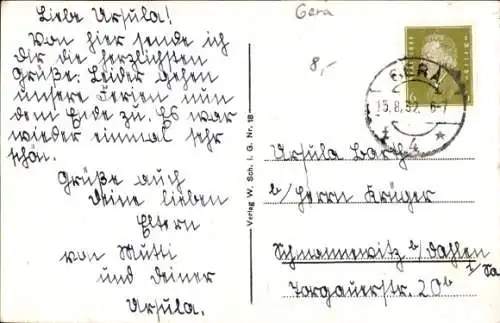 Liebe Ursula!
Von hier sende ich
Dir die herzlichsten
Grüße. Leider gehen
unsere Ferien nun
dem Ende zu. Es war
wieder einmal sehr
schön.
Grüße auch
Deine lieben
Eltern
von Mutti
und deiner
Ursula.
Verlag W. Sch. I. G. Nr. 18
Gera
8,-
GERA
15.8.32. 6-7
4
Ursula Barth
b/ Herrn Krüger
Schmannewitz b/ Dahlen
i/Sa
Torgauerstr. 20b